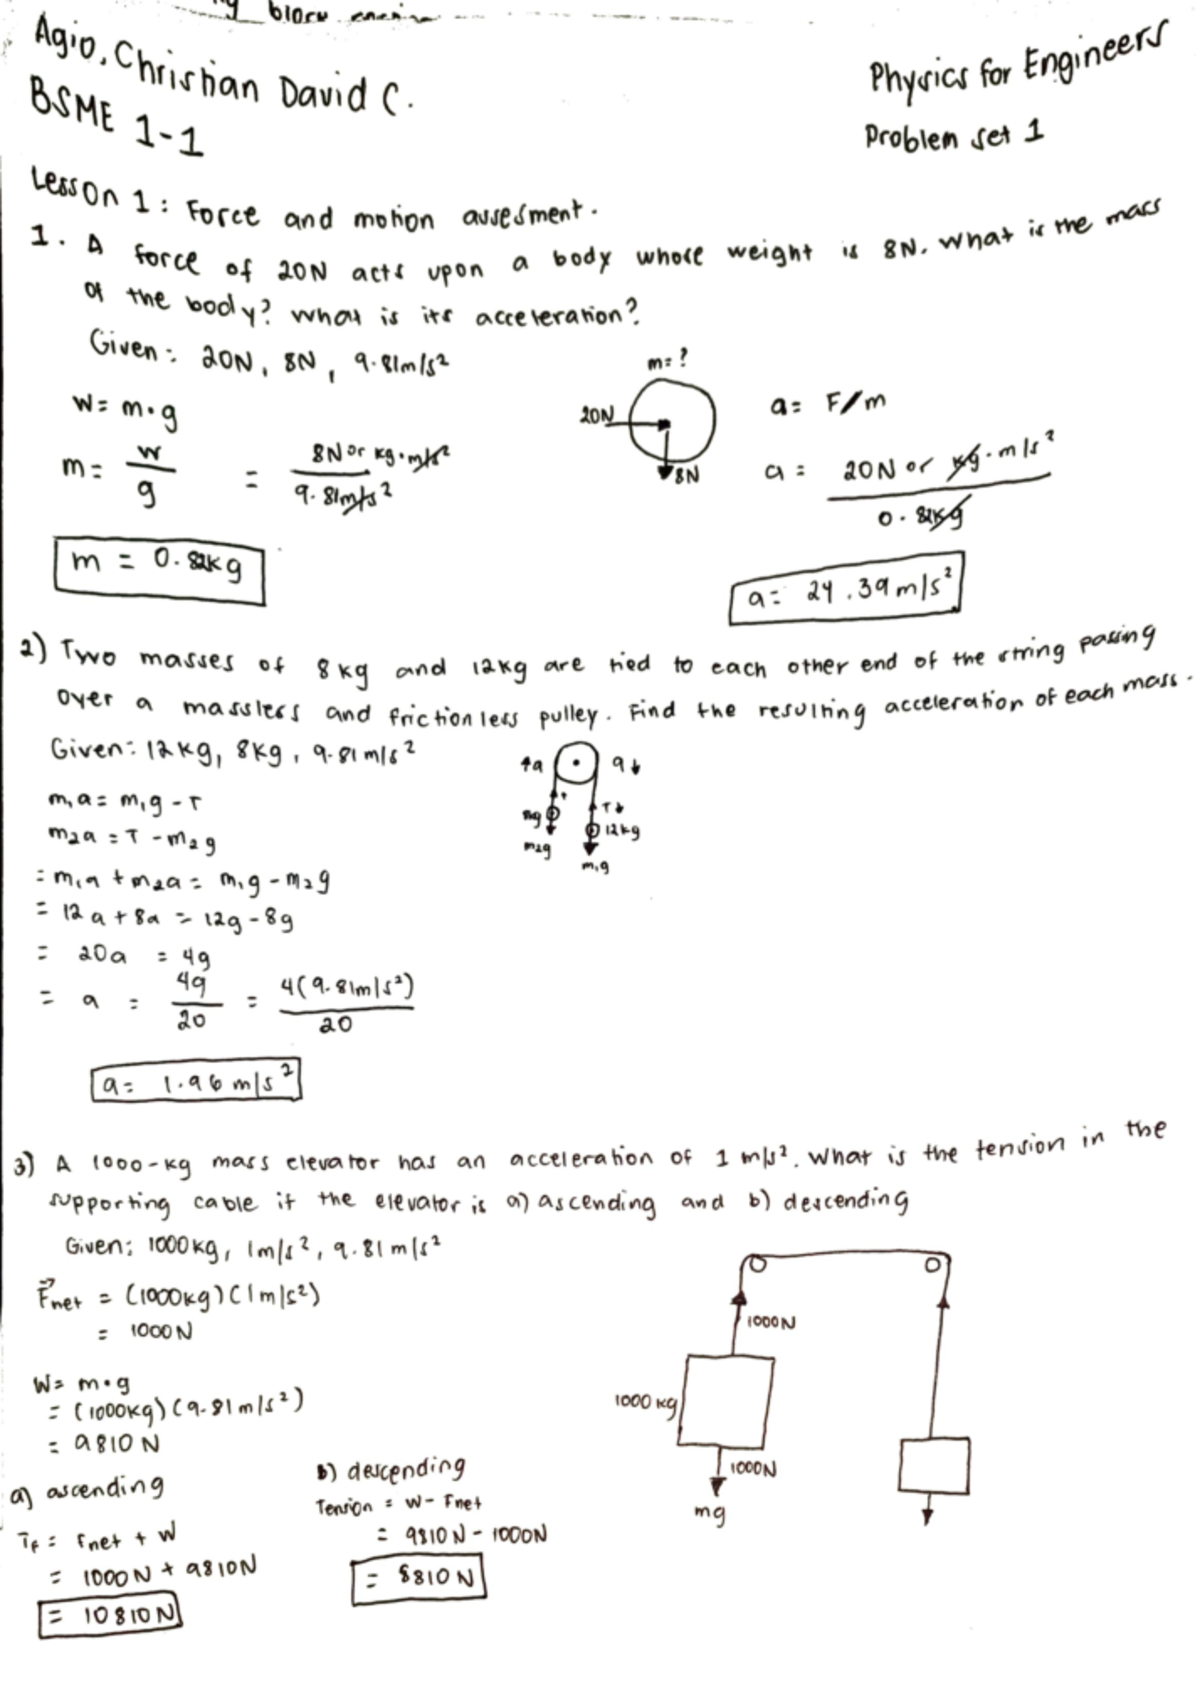 Agio, Christian David C.
BSME 1-1
Physics for Engineers
Problem set 1
Lesson 1: Force and motion assesment.
1. A force of 20N acts upon a body whose weight is 8N. What is the mass
of the body? What is its acceleration?
Given: 20N, 8N, 9.81m/s²
W = m·g
m = w/g = 8N or kg·m/s² / 9.81m/s²
m = 0.82kg
m = ?
20N
8N
a = F/m
a = 20N or kg·m/s² / 0.82kg
a = 24.39 m/s²
2) Two masses of 8 kg and 12kg are tied to each other end of the string passing
over a massless and frictionless pulley. Find the resulting acceleration of each mass.
Given: 12kg, 8kg, 9.81 m/s²
m₁a = m₁g - T
m₂a = T - m₂g
= m₁a + m₂a = m₁g - m₂g
= 12a + 8a = 12g - 8g
= 20a = 4g
= a = 4g/20 = 4(9.81m/s²)/20
a = 1.96 m/s²
↑a
a↓
T
12kg
m₂g
m₁g
3) A 1000-kg mass elevator has an acceleration of 1 m/s². What is the tension in the
supporting cable if the elevator is a) ascending and b) descending
Given: 1000kg, 1m/s², 9.81 m/s²
F⃗net = (1000kg)(1m/s²)
= 1000N
W = m·g
= (1000kg)(9.81m/s²)
= 9810 N
a) ascending
Tf = Fnet + W
= 1000N + 9810N
= 10810N
b) descending
Tension = W - Fnet
= 9810N - 1000N
= 8810 N
1000N
1000 kg
1000N
mg